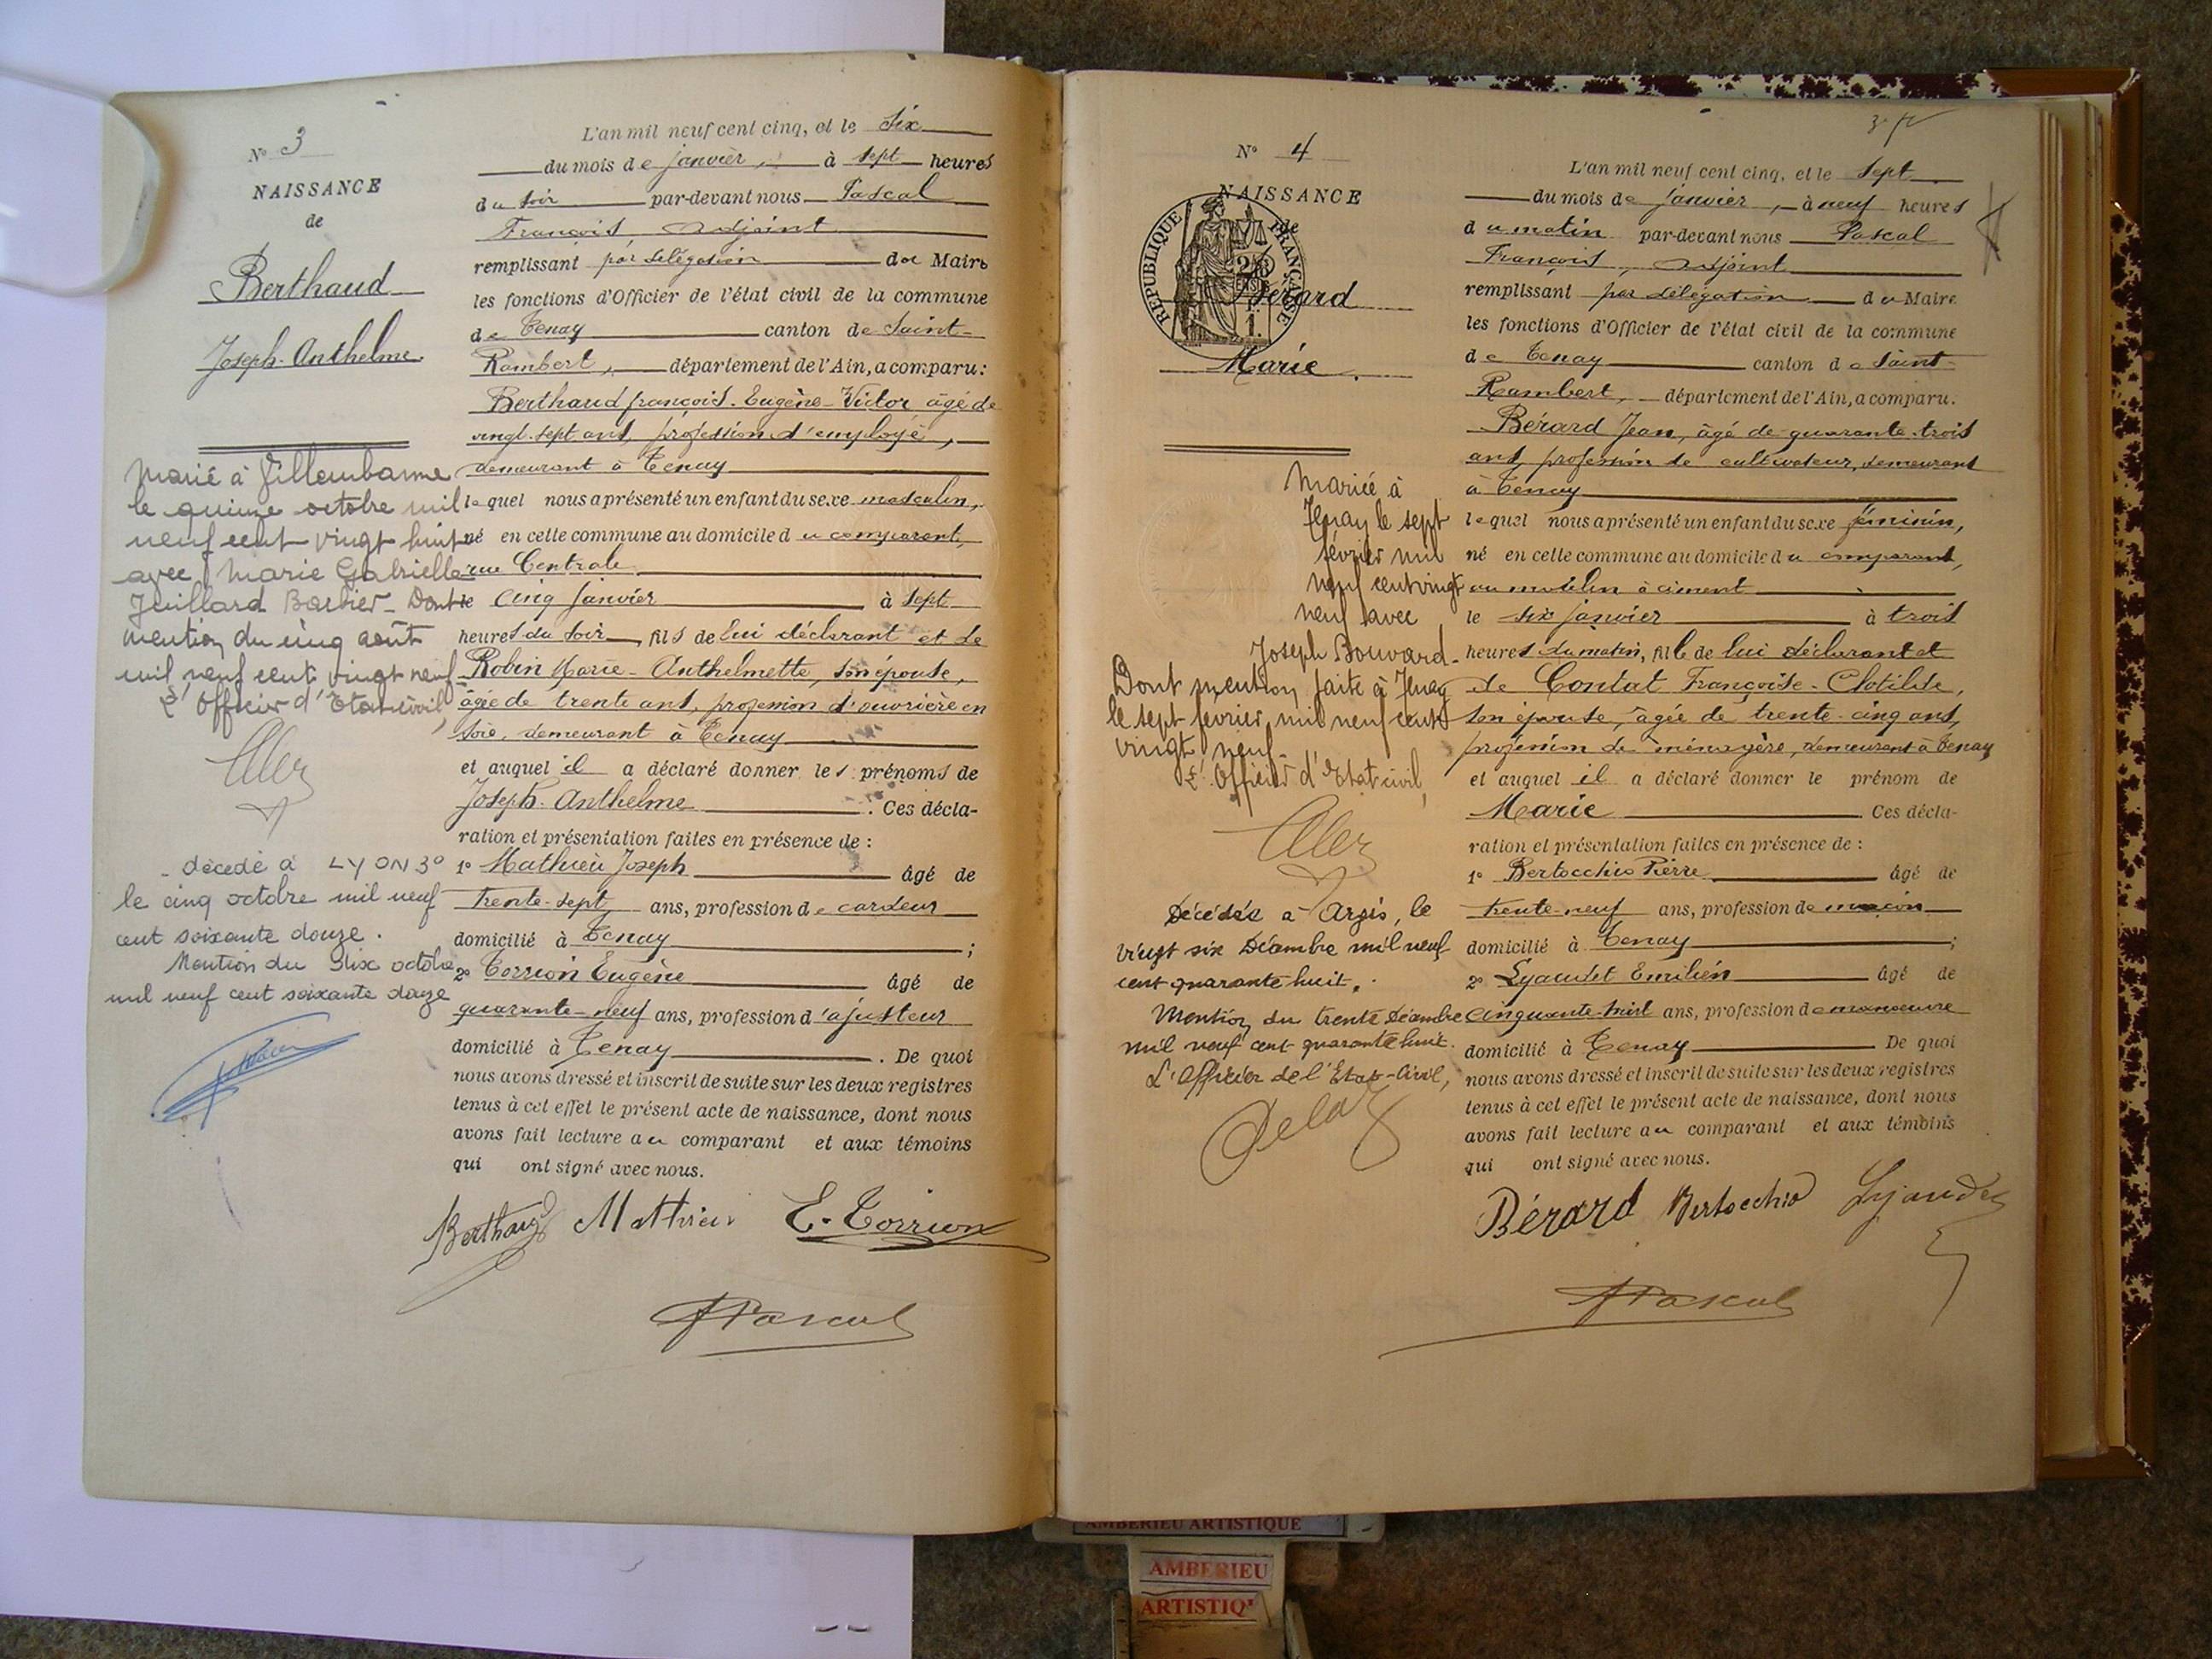 N° 3
NAISSANCE
de
Berthaud
Joseph-Anthelme
Marié à Villeurbanne
le quinze octobre mil
neuf cent vingt huit
avec Marie Gabrielle
Juillard Barbier. Dont
mention du cinq août
mil neuf cent vingt neuf
L'Officier d'Etat civil,
décédé à LYON 3°
le cinq octobre mil neuf
cent soixante douze.
Mention du dix octobre
mil neuf cent soixante douze
L'an mil neuf cent cinq, et le Six
du mois de janvier, à sept heures
du soir par-devant nous Pascal
François Adjoint
remplissant par délégation du Maire
les fonctions d'Officier de l'état civil de la commune
de Tenay canton de Saint-
Rambert, département de l'Ain, a comparu:
Berthaud françois-Eugène-Victor âgé de
vingt-sept ans, profession d'employé,
demeurant à Tenay
lequel nous a présenté un enfant du sexe masculin,
né en cette commune au domicile du comparant,
rue Centrale
le cinq janvier à sept
heures du soir, fils de lui déclarant et de
Robin Marie-Anthelmette, son épouse,
âgée de trente ans, profession d'ouvrière en
soie, demeurant à Tenay
et auquel il a déclaré donner les prénoms de
Joseph-Anthelme. Ces décla-
ration et présentation faites en présence de :
1° Mathieu Joseph âgé de
trente-sept ans, profession de cardeur
domicilié à Tenay ;
2° Torrion Eugène âgé de
quarante-neuf ans, profession d'ajusteur
domicilié à Tenay. De quoi
nous avons dressé et inscrit de suite sur les deux registres
tenus à cet effet le présent acte de naissance, dont nous
avons fait lecture au comparant et aux témoins
qui ont signé avec nous.
Berthaud Mathieu E. Torrion
Pascal
N° 4
NAISSANCE
de
REPUBLIQUE FRANÇAISE
Bérard
Marie
Mariée à
Tenay le sept
février mil
neuf cent vingt
neuf avec
Joseph Bouvard.
Dont mention faite à Tenay
le sept février mil neuf cent
vingt neuf.
L'Officier d'Etat civil,
Décédée à Argis, le
vingt six Décembre mil neuf
cent quarante huit.
Mention du trente Décembre
mil neuf cent quarante huit.
L'Officier de l'Etat-Civil,
L'an mil neuf cent cinq, et le Sept
du mois de janvier, à neuf heures
du matin par-devant nous Pascal
François, Adjoint
remplissant par délégation du Maire
les fonctions d'Officier de l'état civil de la commune
de Tenay canton de Saint-
Rambert, département de l'Ain, a comparu.
Bérard Jean, âgé de quarante-trois
ans, profession de cultivateur, demeurant
à Tenay
lequel nous a présenté un enfant du sexe féminin,
né en cette commune au domicile du comparant,
au moulin à ciment
le six janvier à trois
heures du matin, fille de lui déclarant et
de Contat Françoise-Clotilde,
son épouse, âgée de trente-cinq ans,
profession de ménagère, demeurant à Tenay
et auquel il a déclaré donner le prénom de
Marie. Ces décla-
ration et présentation faites en présence de :
1° Bertocchio Pierre âgé de
trente-neuf ans, profession de maçon
domicilié à Tenay ;
2° Lyaudet Emilien âgé de
cinquante-huit ans, profession de manoeuvre
domicilié à Tenay De quoi
nous avons dressé et inscrit de suite sur les deux registres
tenus à cet effet le présent acte de naissance, dont nous
avons fait lecture au comparant et aux témoins
qui ont signé avec nous.
Bérard Bertocchio Lyaudet
Pascal
AMBERIEU ARTISTIQUE
AMBERIEU
ARTISTIQ